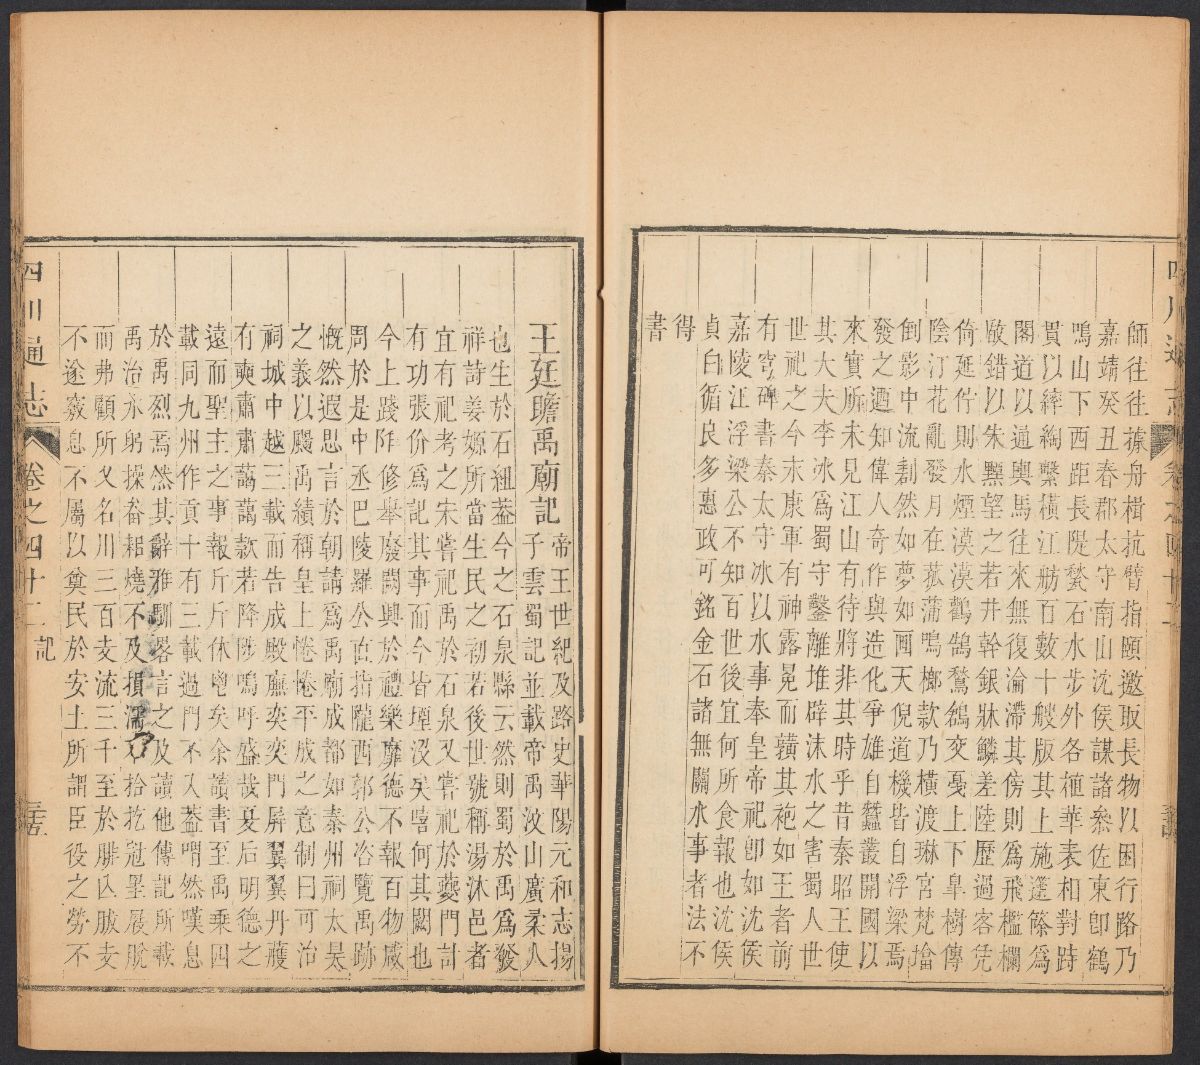 師往往據舟楫抗臂指頤邀取長物以困行路乃
嘉靖癸丑春郡太守南山沈侯謀諸叅佐東卽鶴
鳴山下西距長隄甃石水步外各植華表相對跱
貫以縴綯繫橫江舫百數十艘版其上施籧篨爲
閣道以通輿馬往來無復淪滯其傍則爲飛檻欄
敧錯以朱黑望之若井幹銀牀鱗差陸歷過客凭
倚延佇則水煙漠漠鸛鵠鶖鶬交戞上下臯樹傳
陰汀花亂發月在菰蒲鳴榔款乃橫渡琳宮梵墖
倒影中流割然如夢如画天倪道機皆自浮梁焉
發之迺知偉人奇作與造化爭雄自蠶叢開國以
來實所未見江山有待將非其時乎昔秦昭王使
其大夫李冰爲蜀守鑿離堆辟沫水之害蜀人世
世祀之今末康軍有神露冕而韍其袍如王者前
有穹碑書秦太守冰以水事奉皇帝祀卽如沈侯
嘉陵江浮梁公不知百世後宜何所食報也沈侯
貞白循良多惠政可銘金石諸無關水事者法不
得
書
四川通志
卷之四十二
記
王廷瞻禹廟記
帝王世紀及路史華陽元和志揚
子雲蜀記並載帝禹汶山廣柔人
也生於石紐葢今之石泉縣云然則蜀於禹爲發
祥詩姜嫄所當生民之初若後世號稱湯沐邑者
宜有祀考之宋嘗祀禹於石泉又嘗祀於夔門計
有功張份爲記其事而今皆堙沒矣嘻何其闕也
今上踐阼修舉廢闕興於禮樂靡德不報百物咸
周於是中丞巴陵羅公面指隴西郭公咨覽禹跡
慨然遐思言於朝請爲禹廟成都如泰州祠太昊
之義以颺禹績稱皇上惓惓平成之意制曰可治
祠城中越三載而告成殿廡奕奕門屏翼翼丹雘
有奭肅肅藹藹欵若降陟嗚呼盛哉夏后明德之
遠而聖主之事報斤斤休鬯矣余讀書至禹乘四
載同九州作貢十有三載過門不入葢喟然嘆息
於禹烈焉然其辭雅馴畧言之及讀他傳記所載
禹治水躬操畚耜燒不及撌濡不拾扢冠罣屐脫
而弗顧所又名川三百支流三千至於腓亾胈支
不遂竅息不屬以奠民於安土所謂臣役之勞不
四川通志
卷之四十二
記
三五